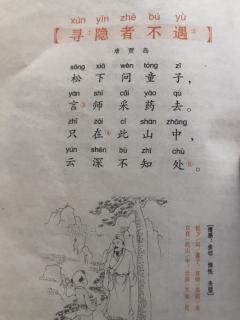 xún yǐn zhě bú yù
【寻隐者不遇】
唐 贾岛
sōng xià wèn tóng zǐ
松下问童子，
yán shī cǎi yào qù
言师采药去。
zhǐ zài cǐ shān zhōng
只在此山中，
yún shēn bù zhī chù
云深不知处。